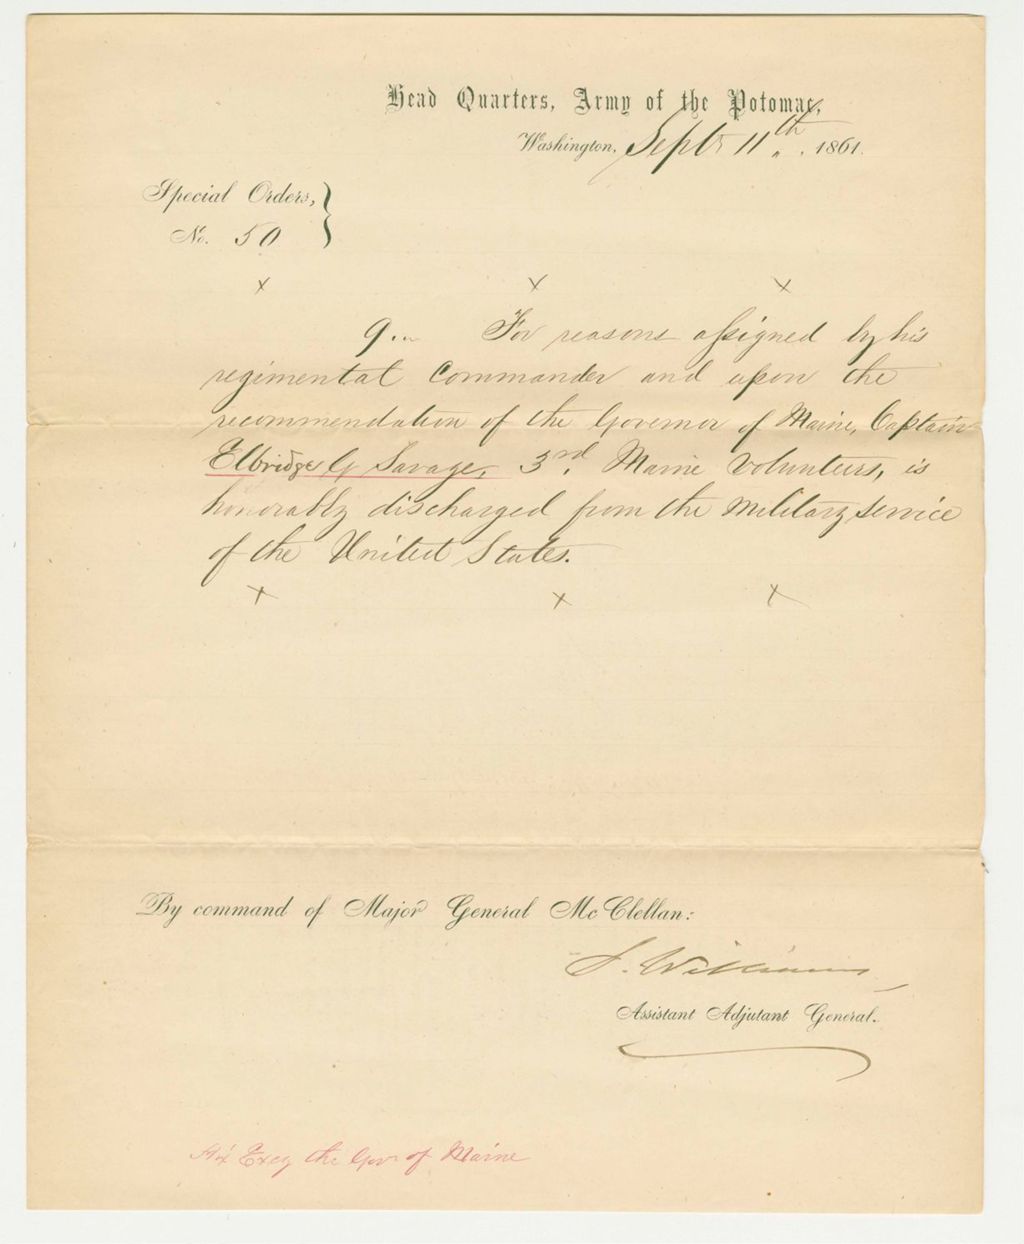 Head Quarters, Army of the Potomac,
Washington, Septr 11th, 1861.
Special Orders,
No. 50
x x x
9.. For reasons assigned by his
regimental Commander and upon the
recommendation of the Governor of Maine, Captain
Elbridge G. Savage, 3rd. Maine Volunteers, is
honorably discharged from the military service
of the United States.
x x x
By command of Major General McClellan:
S. Williams
Assistant Adjutant General.
His Excy the Govr of Maine